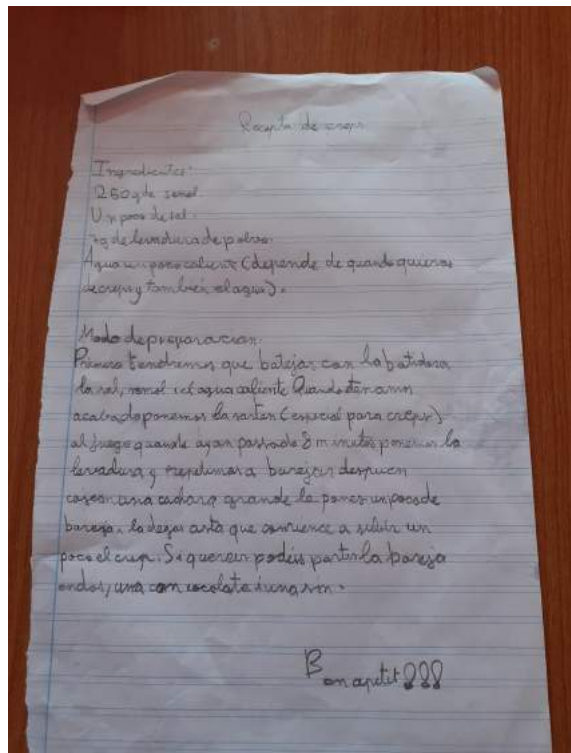 Recepta de creps
Ingredientes:
250g de semol.
Un poco de sal.
7g de levadura de polvo.
Agua un poco caliente (depende de quando quieras
de creps y también el agua).
Modo de preparacion:
Primero tendremos que batejar con la batidora
la sal, semol i el agua caliente Quando
acabado ponemos la sarten (especial para creps)
al fuego quando ayan passado 8 minutos ponemos la
levadura y a barejar despues
una cachara grande le pones un poco de
bareja, la dejas asta que comience a subir un
poco el crep. Si quereis podeis partir la bareja
en dos, una con xocolata i una sin.
Bon apetit!!!